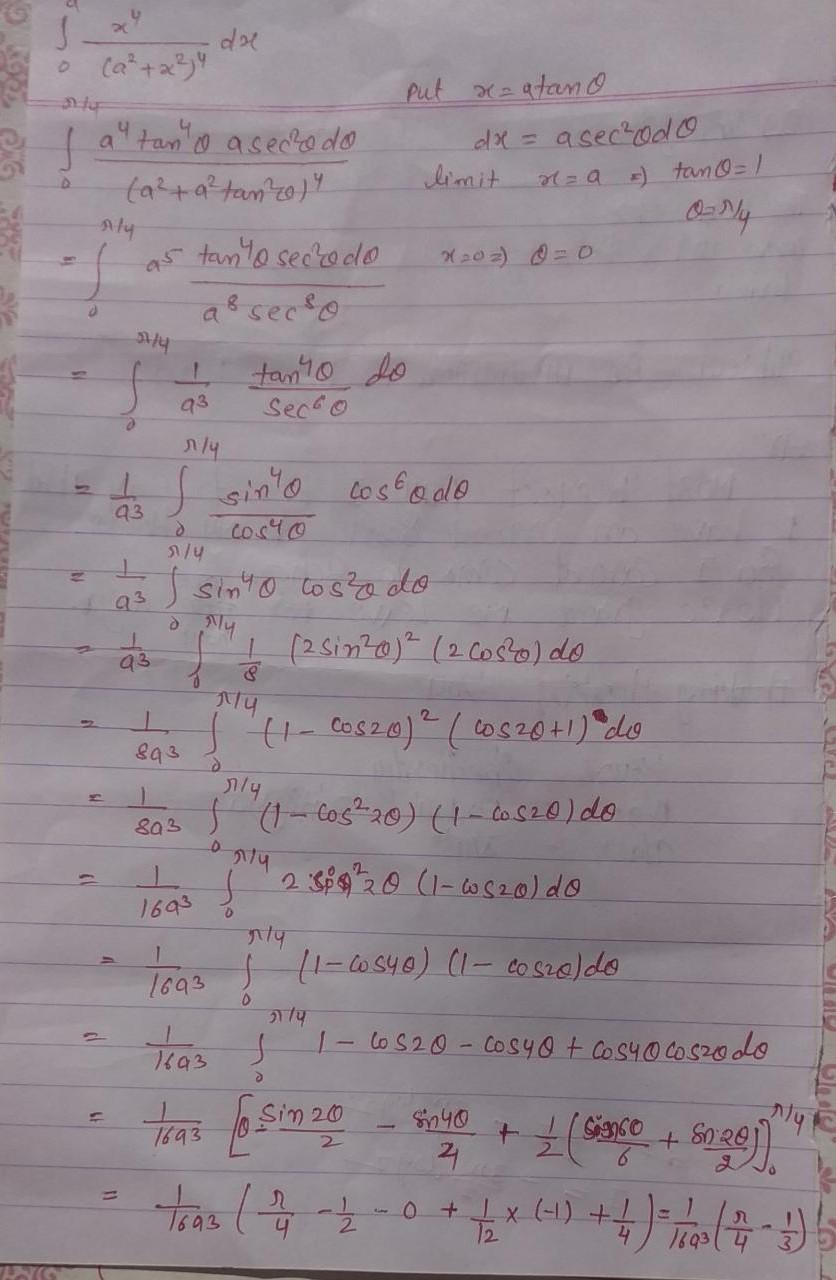 ∫₀ᵃ x⁴/(a²+x²)⁴ dx
Put x = a tanθ
∫₀^(π/4) a⁴ tan⁴θ a sec²θ dθ / (a²+a² tan²θ)⁴ dx = a sec²θ dθ
limit x = a ⇒ tanθ = 1
θ = π/4
= ∫₀^(π/4) a⁵ tan⁴θ sec²θ dθ / a⁸ sec⁸θ x=0 ⇒ θ = 0
= ∫₀^(π/4) 1/a³ tan⁴θ/sec⁶θ dθ
= 1/a³ ∫₀^(π/4) sin⁴θ/cos⁴θ cos⁶θ dθ
= 1/a³ ∫₀^(π/4) sin⁴θ cos²θ dθ
= 1/a³ ∫₀^(π/4) 1/8 (2 sin²θ)² (2 cos²θ) dθ
= 1/8a³ ∫₀^(π/4) (1 - cos2θ)² (cos2θ+1) dθ
= 1/8a³ ∫₀^(π/4) (1 - cos²2θ) (1 - cos2θ) dθ
= 1/16a³ ∫₀^(π/4) 2 sin²2θ (1 - cos2θ) dθ
= 1/16a³ ∫₀^(π/4) (1 - cos4θ) (1 - cos2θ) dθ
= 1/16a³ ∫₀^(π/4) 1 - cos2θ - cos4θ + cos4θ cos2θ dθ
= 1/16a³ [θ - sin2θ/2 - sin4θ/4 + 1/2 (sin6θ/6 + sin2θ/2)]₀^(π/4)
= 1/16a³ (π/4 - 1/2 - 0 + 1/12 × (-1) + 1/4) = 1/16a³ (π/4 - 1/3)